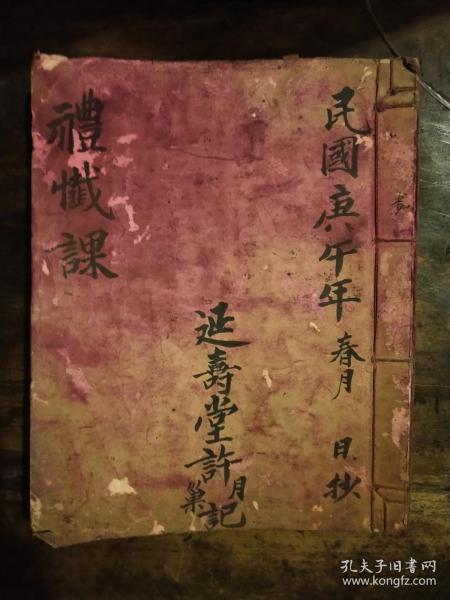 民國庚午年春月 日抄
延壽堂許月巢記
禮懺課
孔夫子旧书网
www.kongfz.com